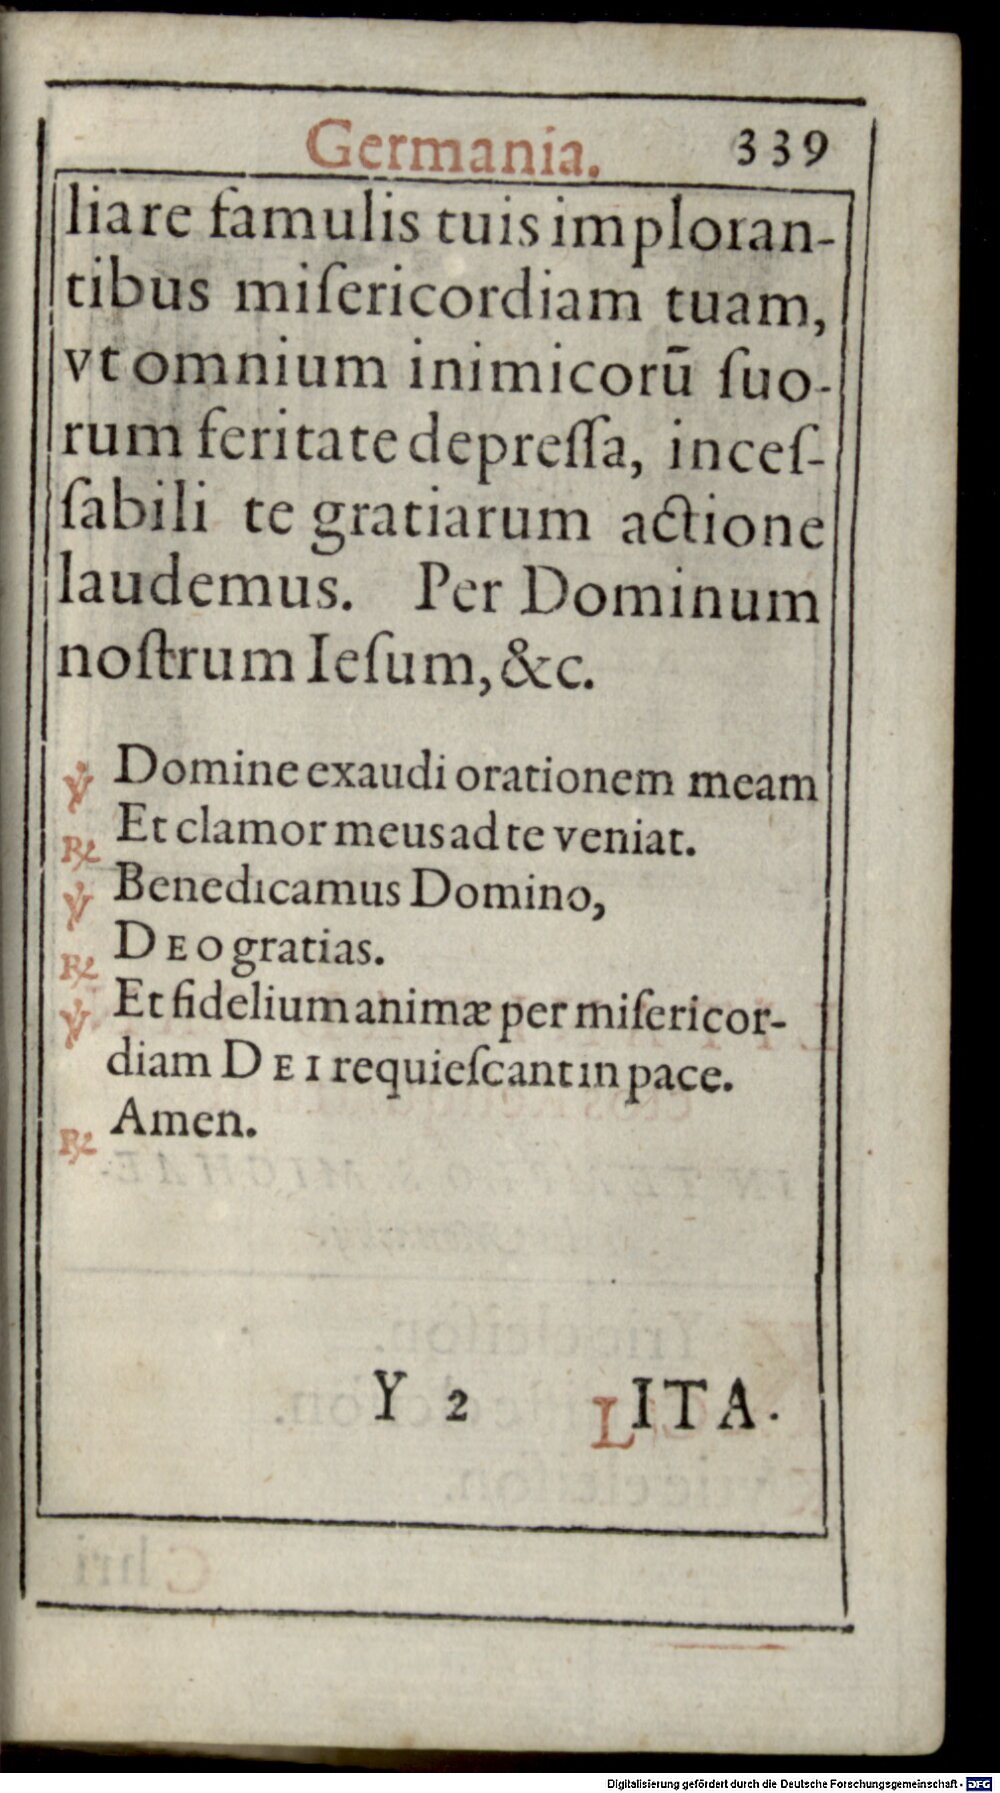 Germania. 339
liare famulis tuis imploran-
tibus miſericordiam tuam,
vt omnium inimicorū ſuo-
rum feritate depreſſa, inceſ-
ſabili te gratiarum actione
laudemus. Per Dominum
noſtrum Ieſum, &c.
℣ Domine exaudi orationem meam
℟ Et clamor meus ad te veniat.
℣ Benedicamus Domino,
℟ DEO gratias.
℣ Et fidelium animæ per miſericor-
diam DEI requieſcant in pace.
℟ Amen.
Y 2 LITA.
Digitalisierung gefördert durch die Deutsche Forschungsgemeinschaft - DFG